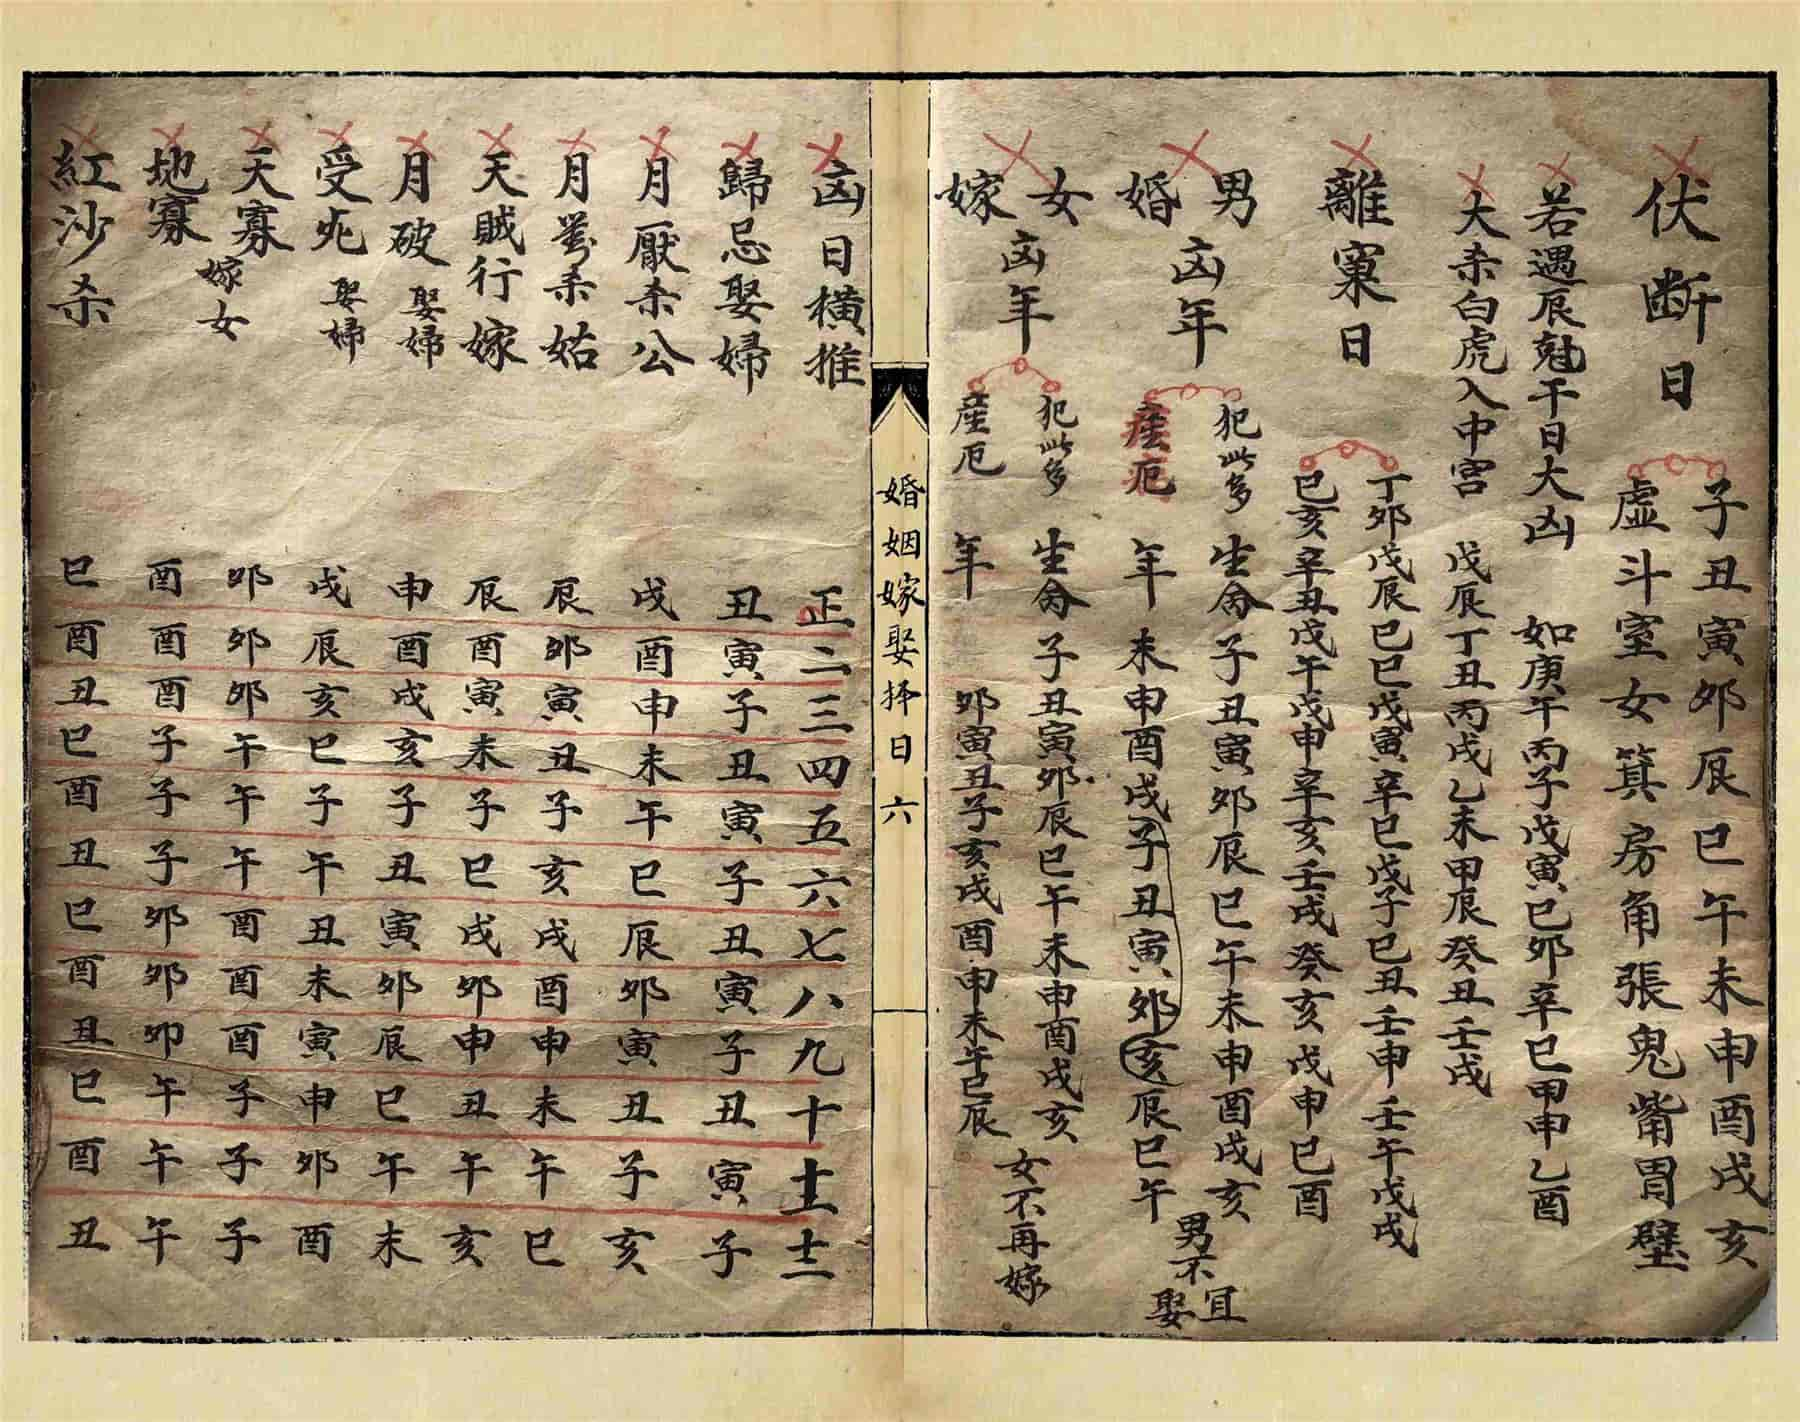 伏断日
子丑寅卯辰巳午未申酉戌亥
虚斗室女箕房角張鬼觜胃壁
若遇辰尅干日大凶 如庚午丙子戊寅巳卯辛巳甲申乙酉
大杀白虎入中宫 戊辰丁丑丙戌乙未甲辰癸丑壬戌
離窠日
丁卯戊辰巳巳戊寅辛巳戊子巳丑壬申壬午戊戌
巳亥辛丑戊午戊申辛亥壬戌癸亥戊申巳酉
男婚凶年
犯此多 生命 子丑寅卯辰巳午未申酉戌亥
厄 年 未申酉戌子丑寅卯亥辰巳午
男不宜娶
女嫁凶年
犯此多 生命 子丑寅卯辰巳午未申酉戌亥
産厄 年 卯寅丑子亥戌酉申未午巳辰
女不再嫁
婚姻嫁娶择日 六
凶日横推 正二三四五六七八九十十一十二
歸忌娶婦 丑寅子丑寅子丑寅子丑寅子
月厭杀公 戌酉申未午巳辰卯寅丑子亥
月杀姑 辰卯寅丑子亥戌酉申未午巳
天贼行嫁 辰酉寅未子巳戌卯申丑午亥
月破娶婦 申酉戌亥子丑寅卯辰巳午未
受死娶婦 戌辰亥巳子午丑未寅申卯酉
天寡 卯卯卯午午午酉酉酉子子子
嫁女
地寡 酉酉酉子子子卯卯卯午午午
紅沙杀 巳酉丑巳酉丑巳酉丑巳酉丑